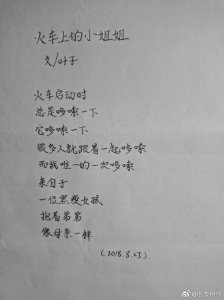 火车上的小姐姐
文/叶子
火车启动时
总是哆嗦一下
它哆嗦一下
很多人就跟着一起哆嗦
而我唯一的一次哆嗦
来自于
一位黑瘦女孩
抱着弟弟
像母亲一样
(2018.8.23)